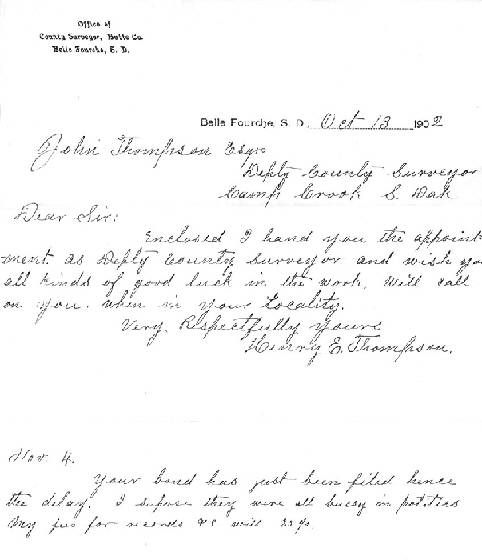 Office of
County Surveyor, Butte Co.
Belle Fourche, S. D.
Belle Fourche, S. D. Oct 13 1902
John Thompson Esqr
Depty County Surveyor
Camp Crook S. Dak
Dear Sir:
Enclosed I hand you the appoint-
ment as Depty County Surveyor and wish you
all kinds of good luck in the work. Will call
on you when in your Locality.
Very Respectfully yours
Henry E. Thompson.
Nov. 4.
Your bond has just been filed hence
the delay. I supose they were all bussy in politics
for &c will